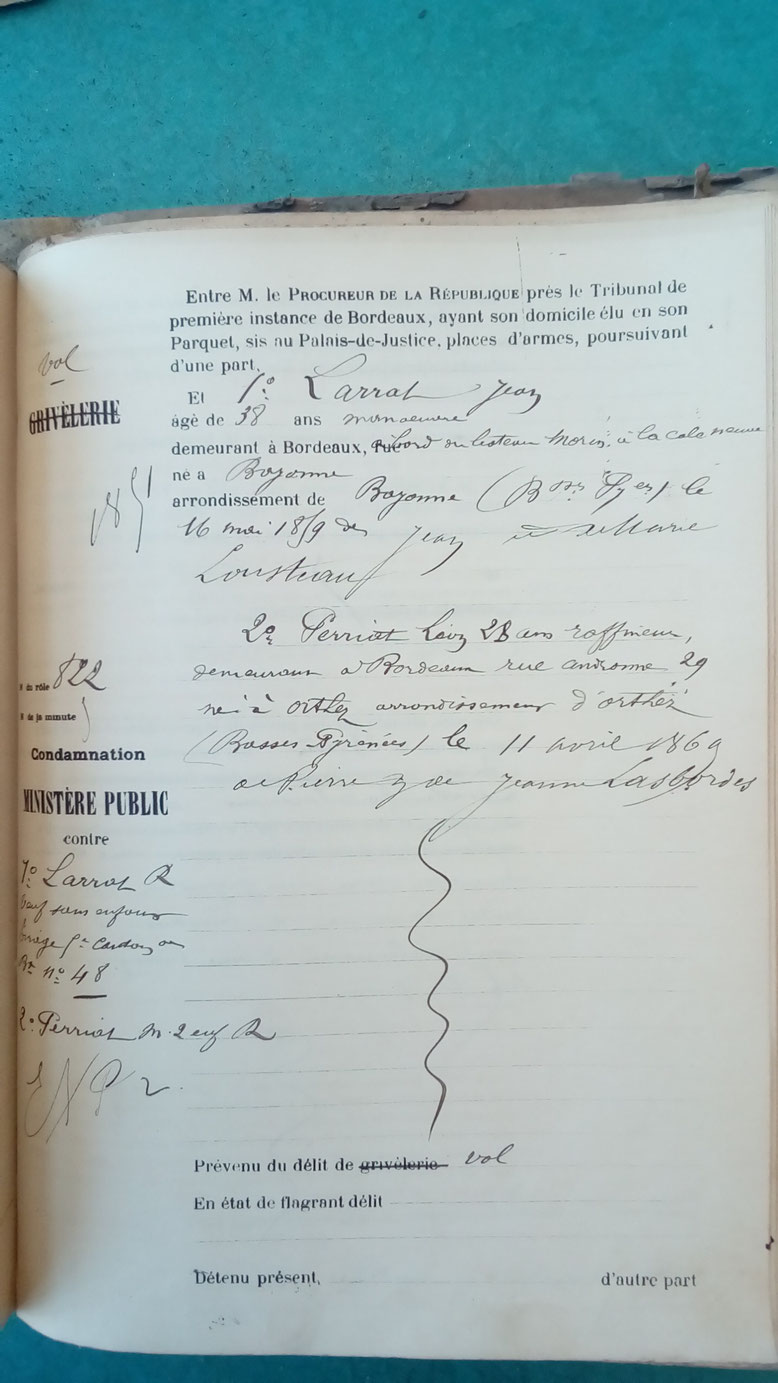 Entre M. le PROCUREUR DE LA RÉPUBLIQUE près le Tribunal de
première instance de Bordeaux, ayant son domicile élu en son
Parquet, sis au Palais-de-Justice, places d'armes, poursuivant
d'une part,
vol
GRIVÈLERIE
Et 1º Larrat Jean
âgé de 38 ans manoeuvre
demeurant à Bordeaux, à bord du bateau Morin, à la cale neuve
né à Bayonne
arrondissement de Bayonne (Bsses Pyees) le
16 mai 1859 de Jean et de Marie
Lousteau
2º Perriat Léon 28 ans raffineur,
demeurant à Bordeaux rue andronne 29
né à Orthez arrondissement d'orthez
(Basses Pyrénées) le 11 avril 1869
de Pierre & de Jeanne Lasbordes
du rôle 822
de la minute
Condamnation
MINISTÈRE PUBLIC
contre
1º Larrat R
veuf sans enfant
nº 48
2º Perriat m. 2 enf R
Prévenu du délit de grivèlerie vol
En état de flagrant délit
Détenu présent, d'autre part